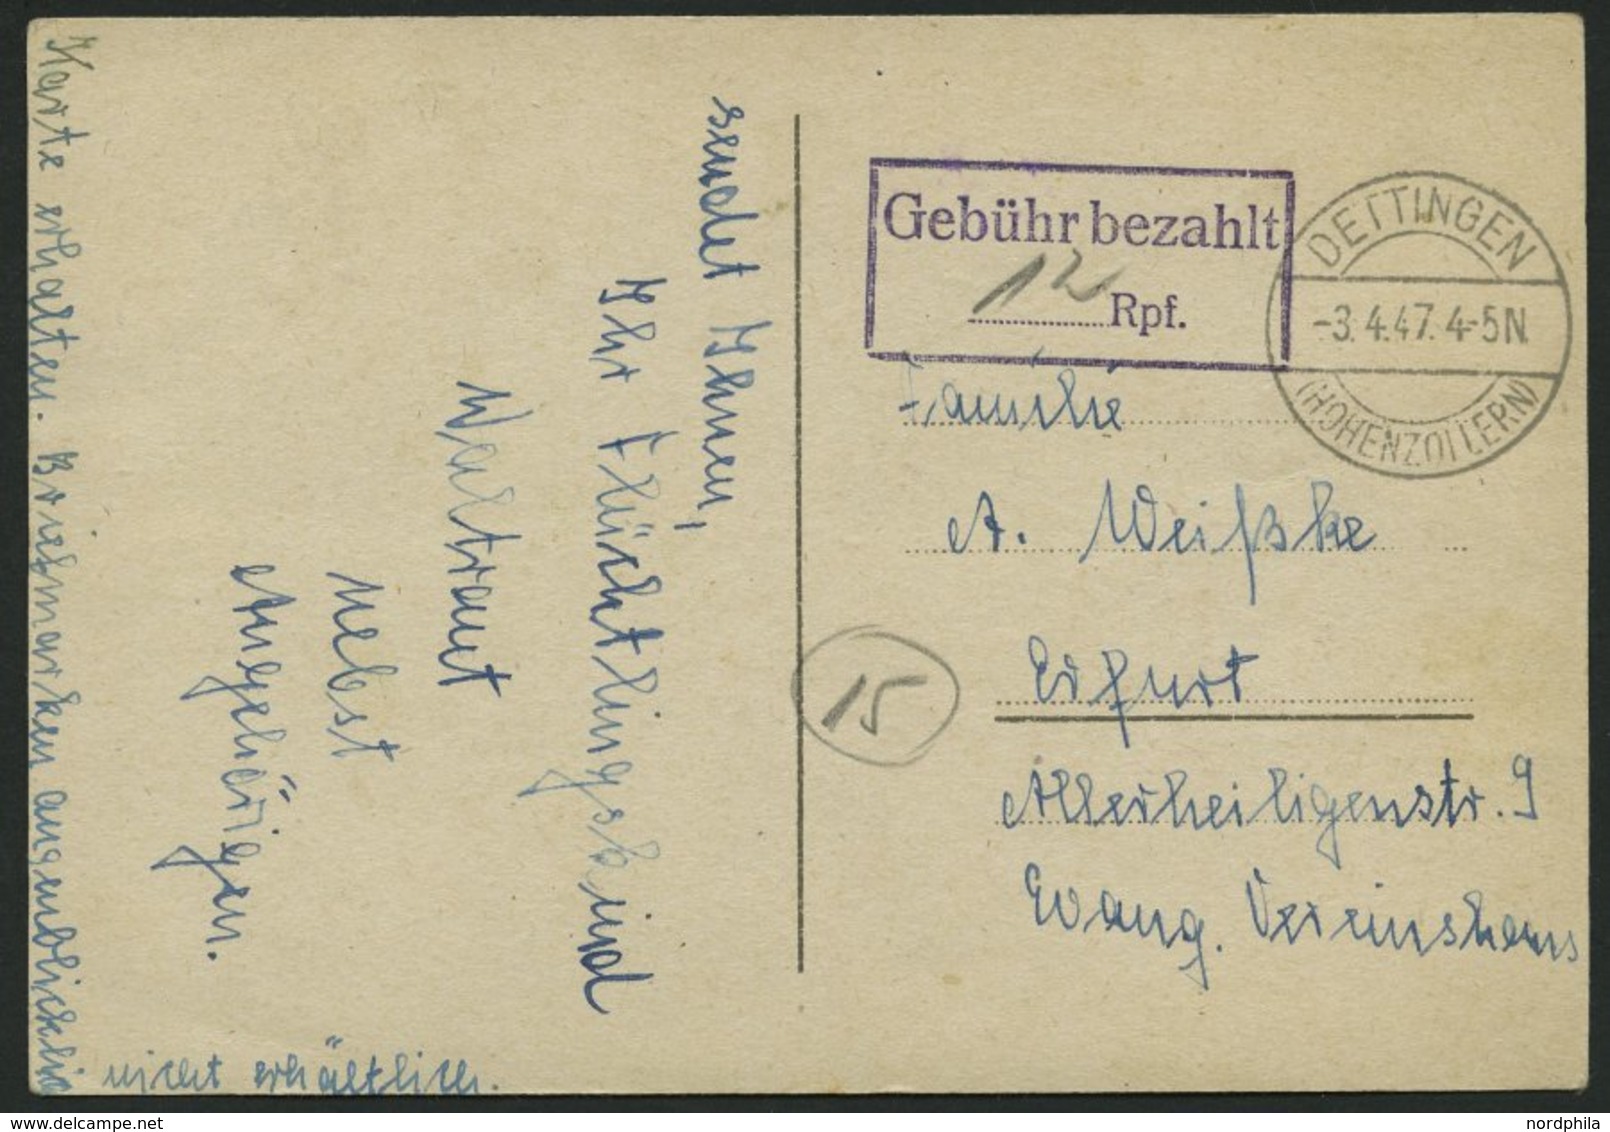 Karte erhalten. Briefmarken augenblicklich
nicht erhältlich.
sendet Ihnen,
Ihr Flüchtlingskind
Waltraut
nebst
Angehörigen.
Gebühr bezahlt
12 Rpf.
DETTINGEN
-3.4.47.4-5N
(HOHENZOLLERN)
Familie
A. Weißke
Erfurt
15
Allerheiligenstr. 9
Evang. Vereinshaus
nordphila